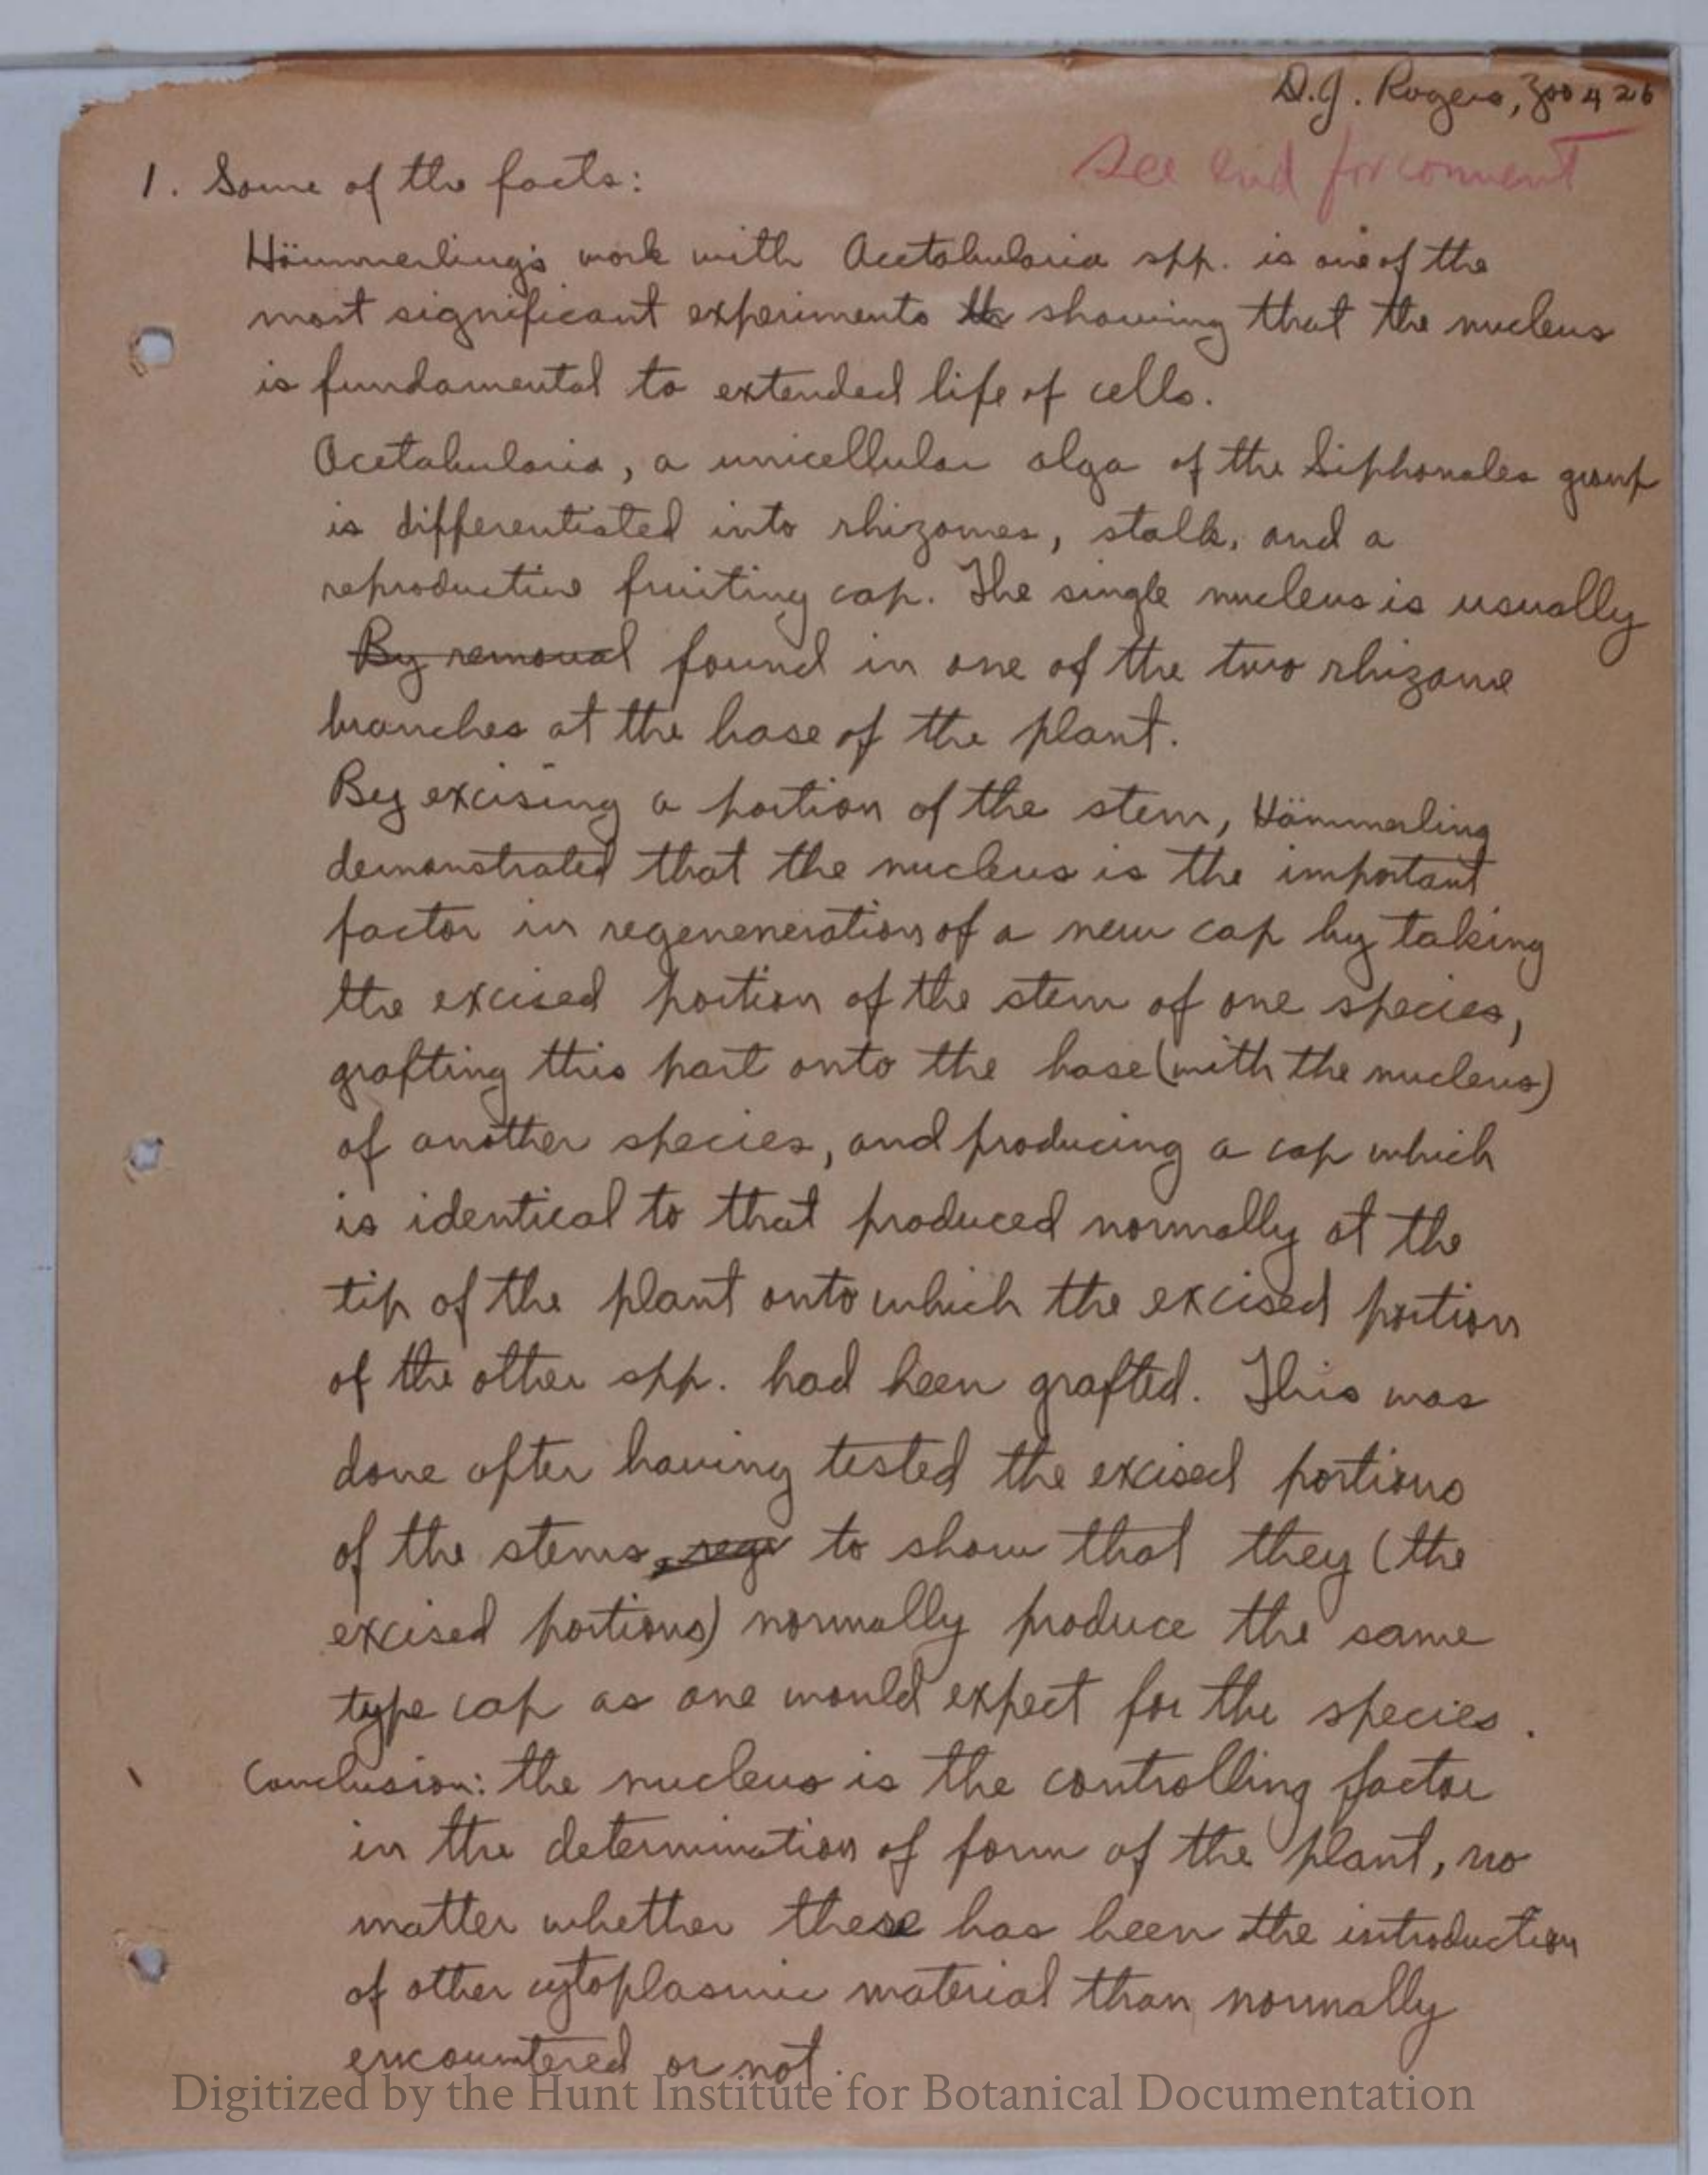 D.J. Rogers, Zoo 426
See end for comment
1. Some of the facts:
Hämmerling's work with Acetabularia spp. is one of the
most significant experiments th showing that the nucleus
is fundamental to extended life of cells.
Acetabularia, a unicellular alga of the Siphonales group
is differentiated into rhizomes, stalk, and a
reproductive fruiting cap. The single nucleus is usually
By removal found in one of the two rhizome
branches at the base of the plant.
By excising a portion of the stem, Hämmerling
demonstrated that the nucleus is the important
factor in regeneneration of a new cap by taking
the excised portion of the stem of one species,
grafting this part onto the base (with the nucleus)
of another species, and producing a cap which
is identical to that produced normally at the
tip of the plant onto which the excised portion
of the other spp. had been grafted. This was
done after having tested the excised portions
of the stems, rege to show that they (the
excised portions) normally produce the same
type cap as one would expect for the species.
Conclusion: the nucleus is the controlling factor
in the determination of form of the plant, no
matter whether there has been the introduction
of other cytoplasmic material than normally
encountered or not.
Digitized by the Hunt Institute for Botanical Documentation